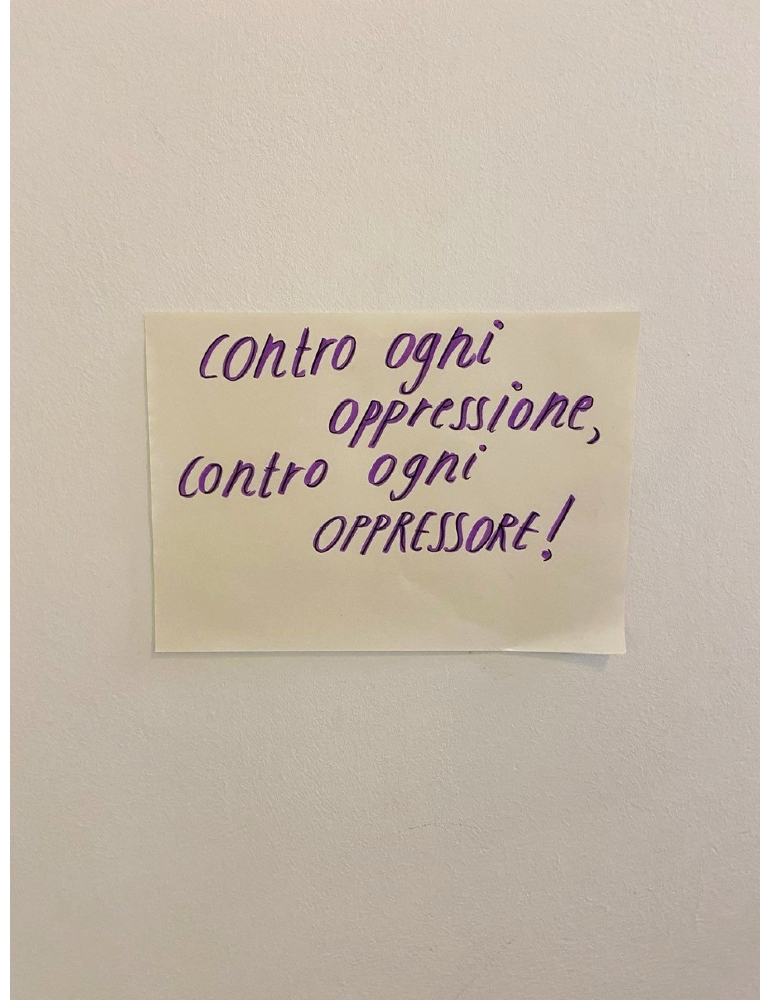 contro ogni
oppressione,
contro ogni
OPPRESSORE!